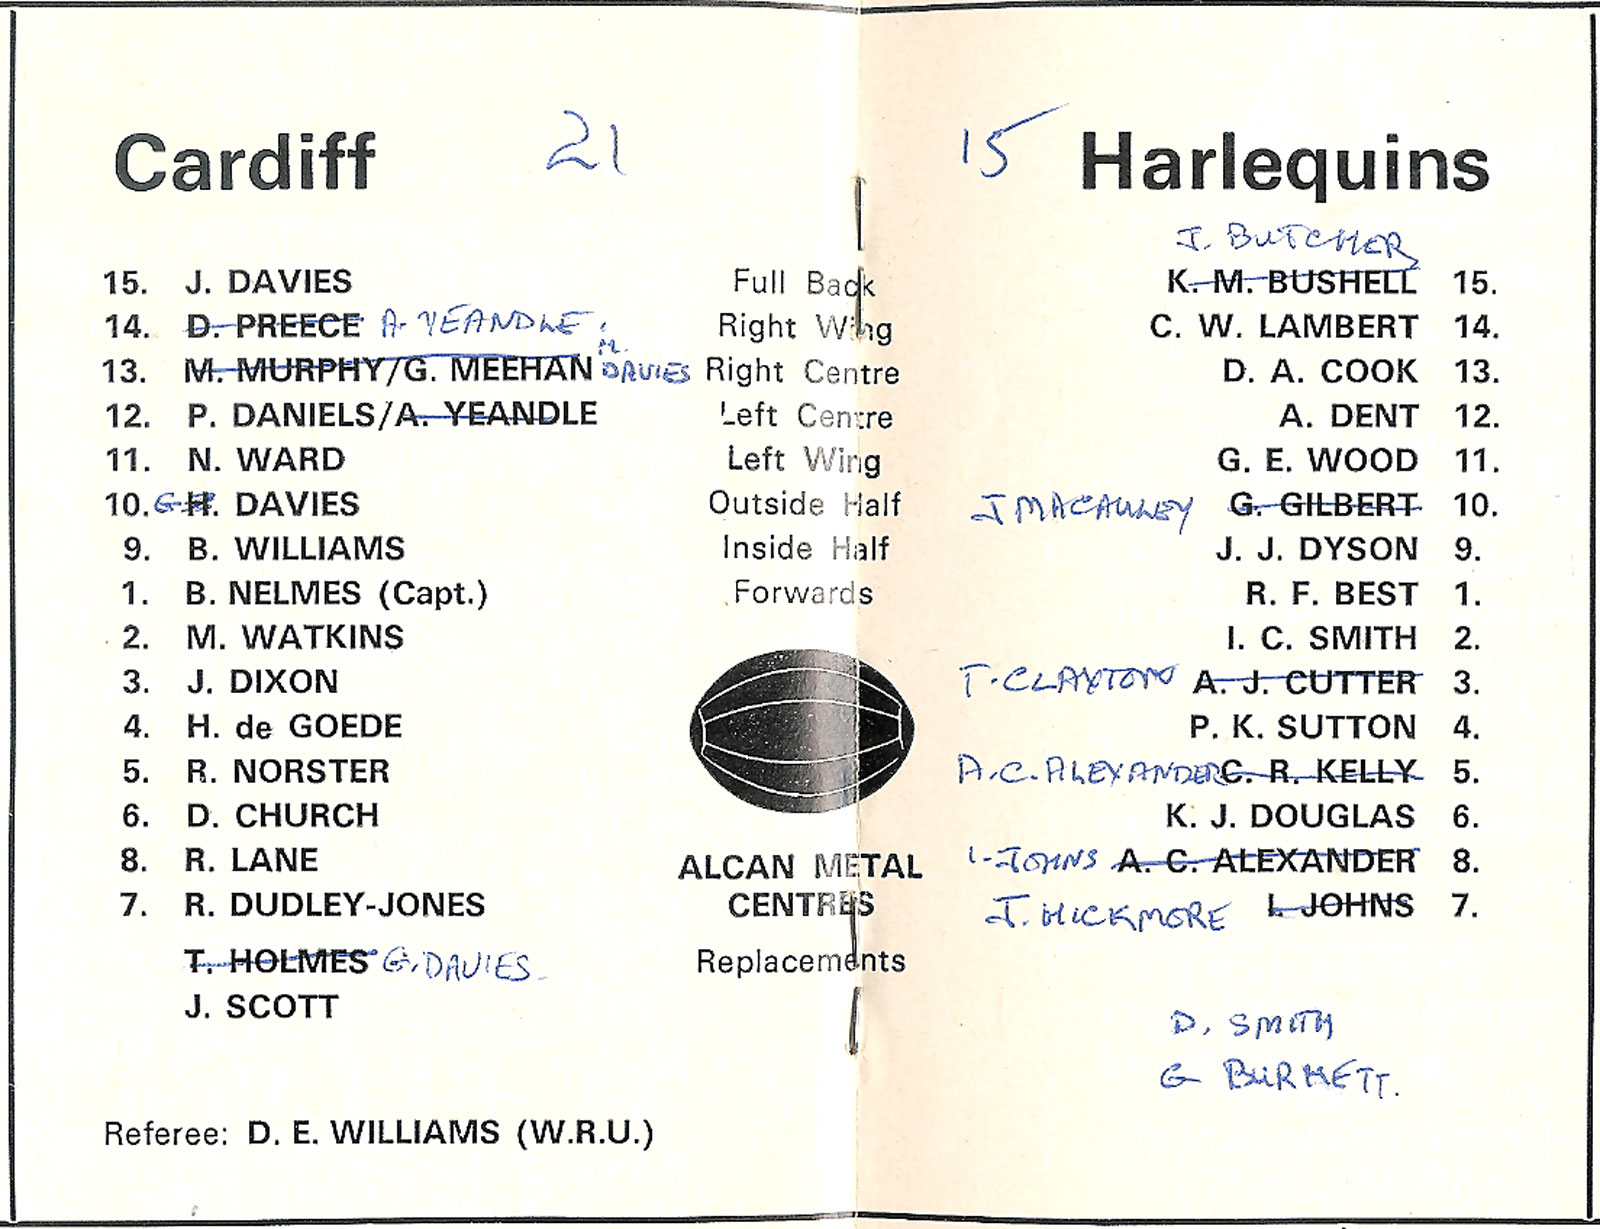 Cardiff 21 15 Harlequins
J. BUTCHER
15. J. DAVIES Full Back K. M. BUSHELL 15.
14. D. PREECE A. YEANDLE. Right Wing C. W. LAMBERT 14.
13. M. MURPHY/G. MEEHAN M. DAVIES Right Centre D. A. COOK 13.
12. P. DANIELS/A. YEANDLE Left Centre A. DENT 12.
11. N. WARD Left Wing G. E. WOOD 11.
10. G H. DAVIES Outside Half J MACAULEY G. GILBERT 10.
9. B. WILLIAMS Inside Half J. J. DYSON 9.
1. B. NELMES (Capt.) Forwards R. F. BEST 1.
2. M. WATKINS I. C. SMITH 2.
3. J. DIXON T. CLAXTON A. J. CUTTER 3.
4. H. de GOEDE P. K. SUTTON 4.
5. R. NORSTER A.C. ALEXANDER C. R. KELLY 5.
6. D. CHURCH K. J. DOUGLAS 6.
8. R. LANE ALCAN METAL I-JOHNS A. C. ALEXANDER 8.
7. R. DUDLEY-JONES CENTRES J. HICKMORE I. JOHNS 7.
T. HOLMES G. DAVIES Replacements
J. SCOTT
D. SMITH
G BURMETT.
Referee: D. E. WILLIAMS (W.R.U.)